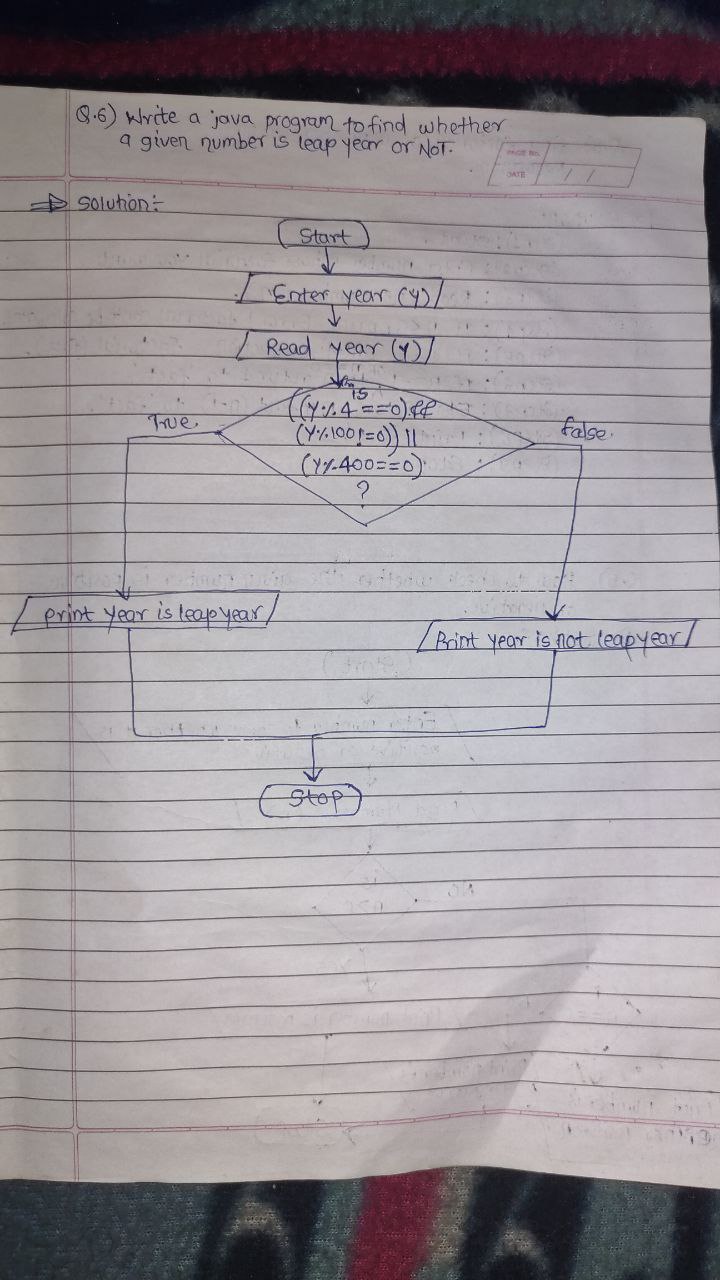 Q.6) Write a java program to find whether
a given number is leap year or NOT.
PAGE NO.
DATE / /
⇒ Solution:-
Start
Enter year (Y)
Read year (Y)
is
((Y%4==0)&&
(Y%100!=0))||
(Y%400==0)
?
True.
false.
print year is leap year
Print year is not leap year
Stop